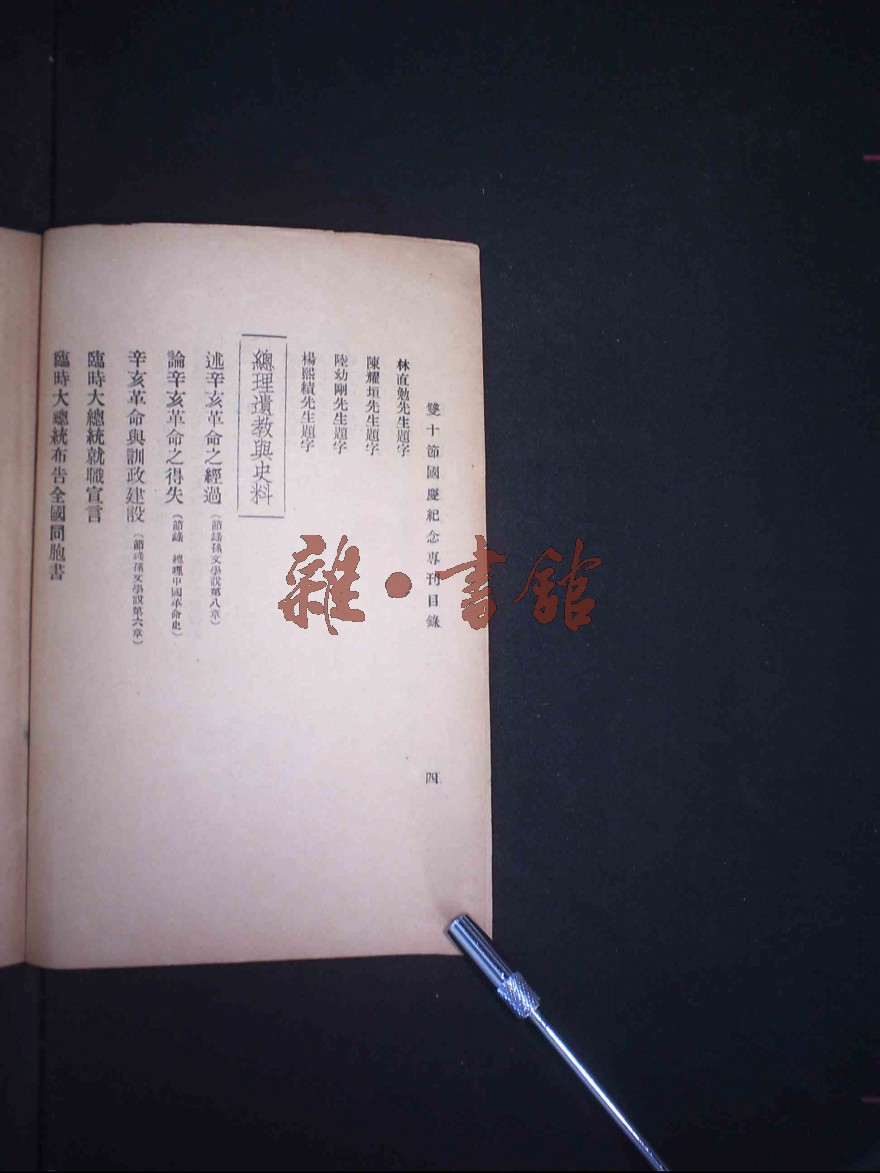 雙十節國慶紀念專刊目錄
四
林直勉先生題字
陳耀垣先生題字
陸幼剛先生題字
楊熙績先生題字
總理遺教與史料
述辛亥革命之經過(節錄孫文學說第八章)
論辛亥革命之得失(節錄 總理中國革命史)
辛亥革命與訓政建設(節錄孫文學說第六章)
臨時大總統就職宣言
臨時大總統布告全國同胞書
雜·書館